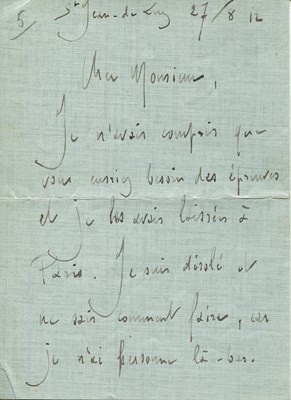 5 St Jean-de Luz 27/8 12
Cher Monsieur,
Je n'avais compris que
vous eussiez besoin des épreuves
et je les avais laissées à
Paris. Je suis désolé et
ne sais comment faire, car
je n'ai personne là-bas.